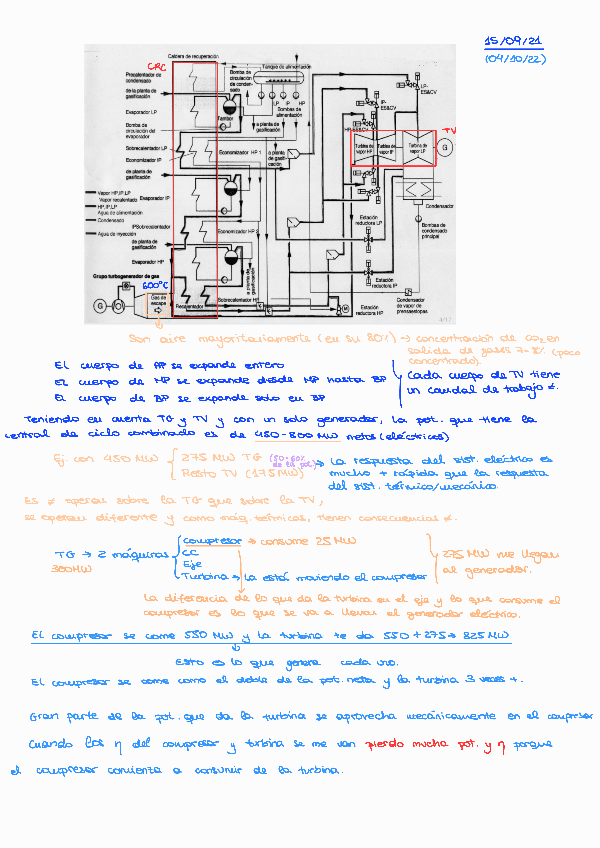 15/09/21
(04/10/22)
CRC
Caldera de recuperación
Precalentador de
condensado
de la planta de
gasificación
Evaporador LP
Bomba de
circulación del
evaporador
Sobrecalentador LP
Economizador IP
de planta de
gasificación
Vapor HP,IP,LP
Vapor recalentado
HP,IP,LP
Agua de alimentación
Condensado
Agua de inyección
Evaporador IP
IPSobrecalentador
de planta de
gasificación
Evaporador HP
Grupo turbogenerador de gas
600°C
Gas de
escape
G
Recalentador
Sobrecalentador HP
Bomba de
circulación
de conden-
sado
Tanque de alimentación
LP IP HP
Bombas de
alimentación
Tambor
a planta de
gasificación
a planta de
gasificación
Economizador HP 1
a planta
de gasifi-
cación
Economizador HP 2
a planta de
gasificación
LP-
ES&CV
IP-
ES&CV
HP-ES&CV
TV
Turbina de
vapor HP
Turbina de
vapor IP
Turbina de
vapor LP
G
Condensador
Bombas de
condensado
principal
Estación
reductora LP
Estación
reductora IP
Estación
reductora HP
Condensador
de vapor de
prensaestopas
M
Son aire mayoritariamente (en su 80%) → concentración de CO2 en
salida de gases 7-8% (poco
concentrado).
El cuerpo de AP se expande entero
El cuerpo de MP se expande desde MP hasta BP
El cuerpo de BP se expande solo en BP
Cada cuerpo de TV tiene
un caudal de trabajo ≠.
Teniendo en cuenta TG y TV y con un solo generador, la pot. que tiene la
central de ciclo combinado es de 450-800 MW netos (eléctricos)
Ej. con 450 MW { 275 MW TG (50-60% de la pot.)
Resto TV (175 MW)
→ La respuesta del sist. eléctrico es
mucho + rápida que la respuesta
del sist. térmico/mecánico.
Es ≠ operar sobre la TG que sobre la TV,
se operan diferente y como máq. térmicas, tienen consecuencias ≠.
TG → 2 máquinas
300MW
Compresor → consume 25 MW
CC
Eje
Turbina → La está moviendo el compresor
275 MW me llegan
al generador.
La diferencia de lo que da la turbina en el eje y lo que consume el
compresor es lo que se va a llevar el generador eléctrico.
El compresor se come 550 MW y la turbina te da 550 + 275 → 825 MW
Esto es lo que genera cada uno.
El compresor se come como el doble de la pot. neta y la turbina 3 veces +.
Gran parte de la pot. que da la turbina se aprovecha mecánicamente en el compresor
Cuando los η del compresor y turbina se me van pierdo mucha pot. y η porque
el compresor comienza a consumir de la turbina.